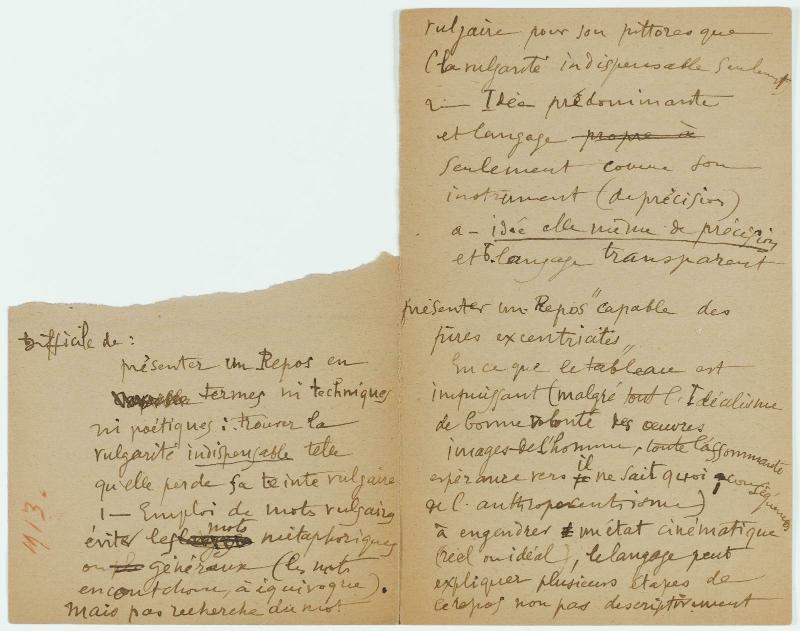 Difficile de :
présenter un Repos en
termes ni techniques
ni poétiques : trouver la
vulgarité indispensable telle
qu'elle perde sa teinte vulgaire
1 — Emploi de mots vulgaires
éviter les mots métaphoriques
ou généraux (les mots
en caoutchouc, à équivoque).
Mais pas recherche du mot
913.
vulgaire pour son pittoresque
(la vulgarité indispensable seulement
2 — Idée prédominante
et langage propre à
seulement comme son
instrument (de précision)
a — idée elle même de précision
et b. langage transparent
présenter un Repos "capable des
pires excentricités"
En ce que le tableau est
impuissant (malgré tout l'Idéalisme
de bonne volonté des œuvres
images de l'homme, toute l'assommante
espérance vers il ne sait quoi, conséquences
de l'anthropocentrisme)
à engendrer un état cinématique
(réel ou idéal), le langage peut
expliquer plusieurs étapes de
ce repos non pas descriptivement